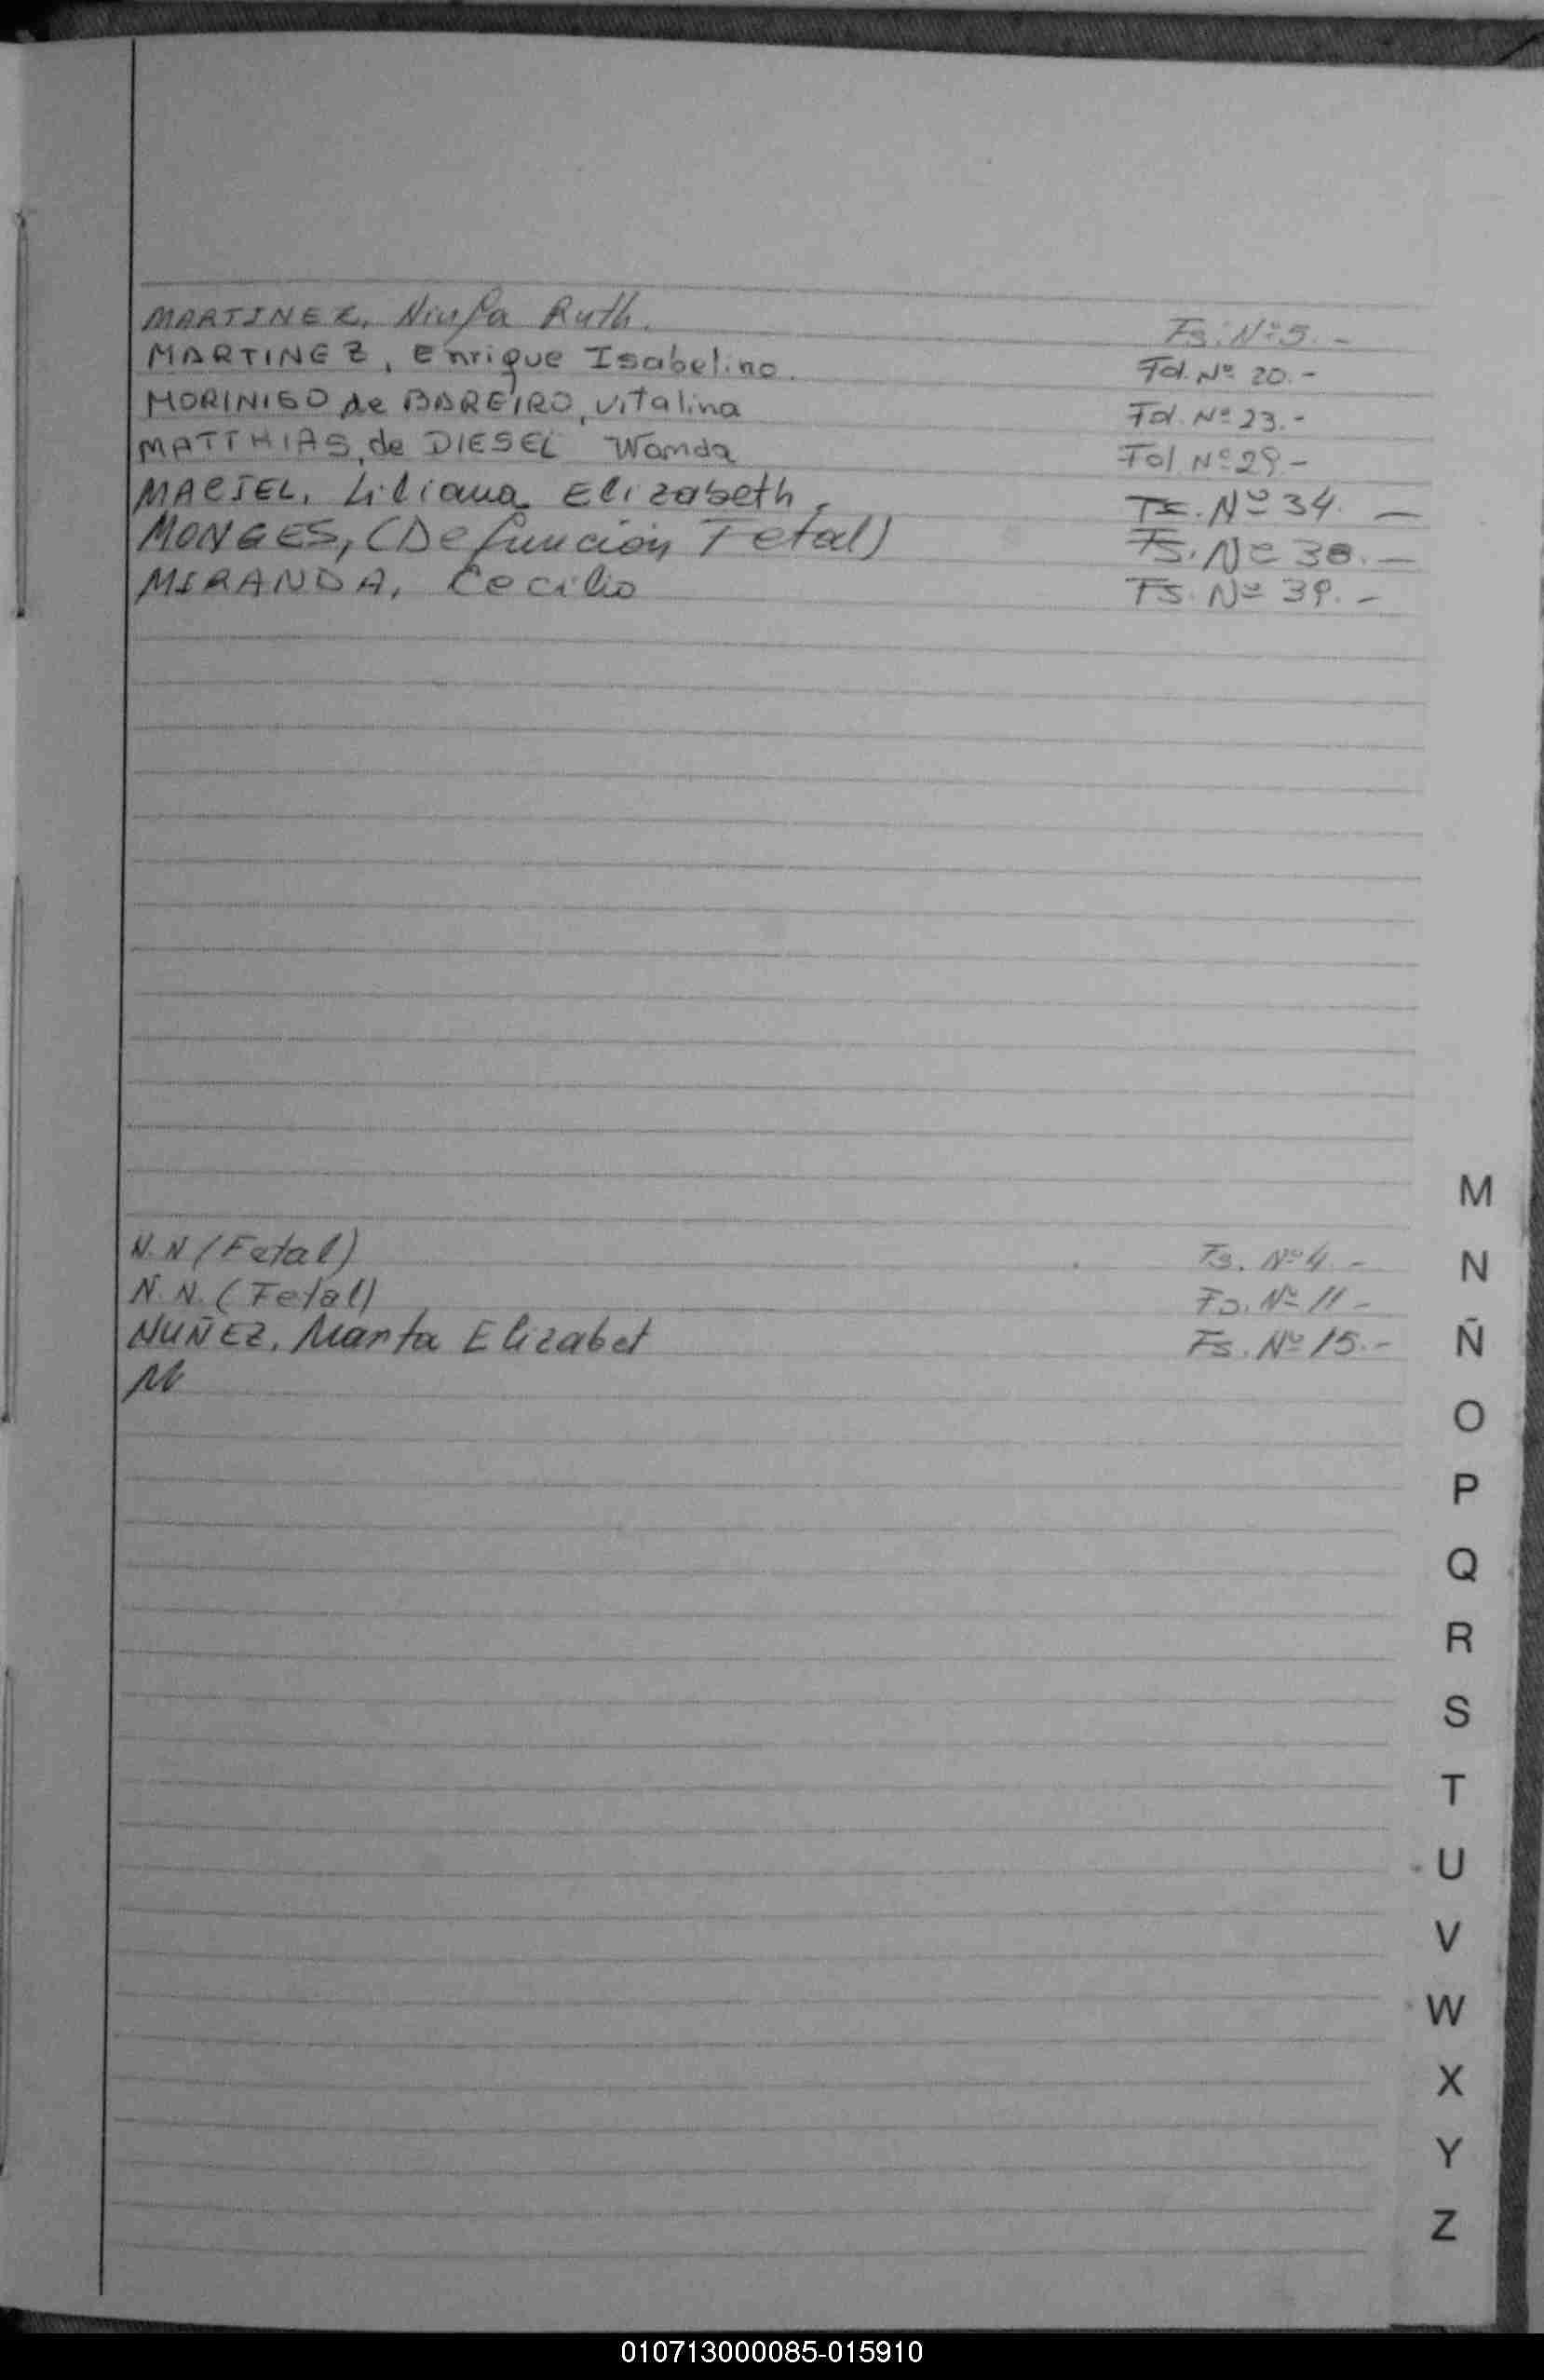 MARTINEZ, Ninfa Ruth. Fs. Nº 5.-
MARTINEZ, Enrique Isabelino. Fol. Nº 20.-
MORINIGO de BAREIRO, Vitalina Fol. Nº 23.-
MATTHIAS, de DIESEL Wanda Fol Nº 29.-
MACIEL, Liliana Elizabeth, Fs. Nº 34. —
MONGES, (Defunción Fetal) Fs. Nº 38. —
MIRANDA, Cecilio Fs. Nº 39. -
M
N.N (Fetal) Fs. Nº 4. - N
N.N. (Fetal) Fs. Nº 11 -
NUÑEZ, Marta Elizabet Fs. Nº 15.- Ñ
O
P
Q
R
S
T
U
V
W
X
Y
Z
010713000085-015910